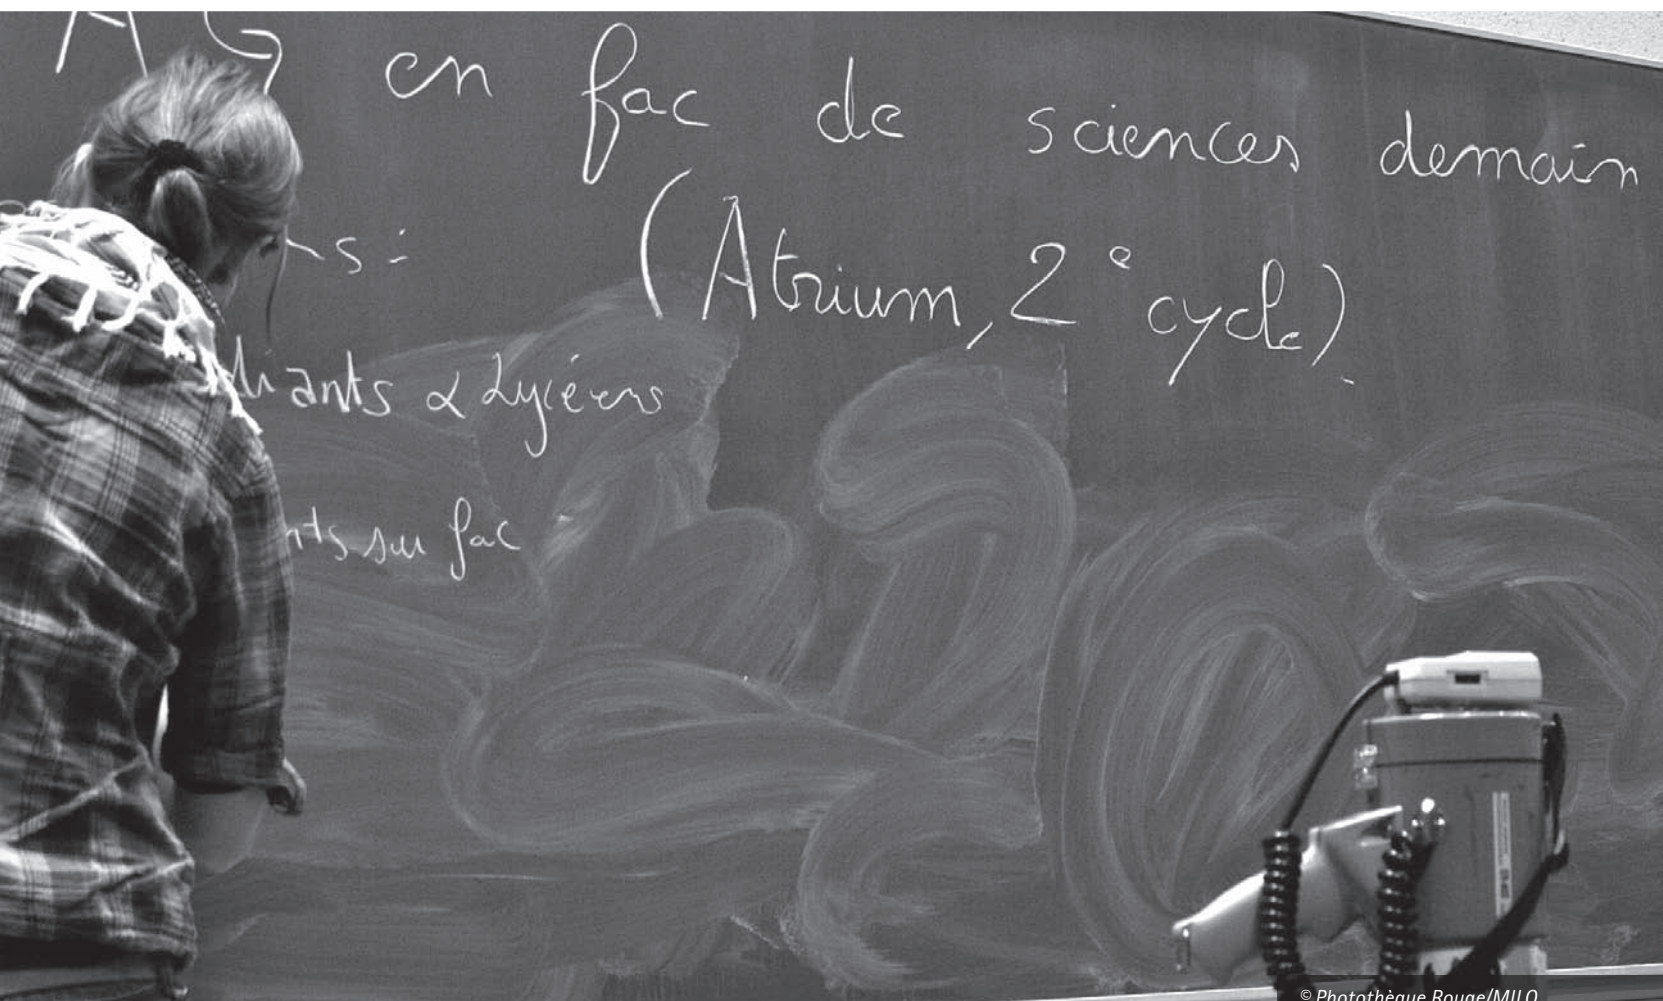 AG en fac de sciences demain
(Atrium, 2e cycle)
& Lycéens
sur fac
© Photothèque Rouge/MILO